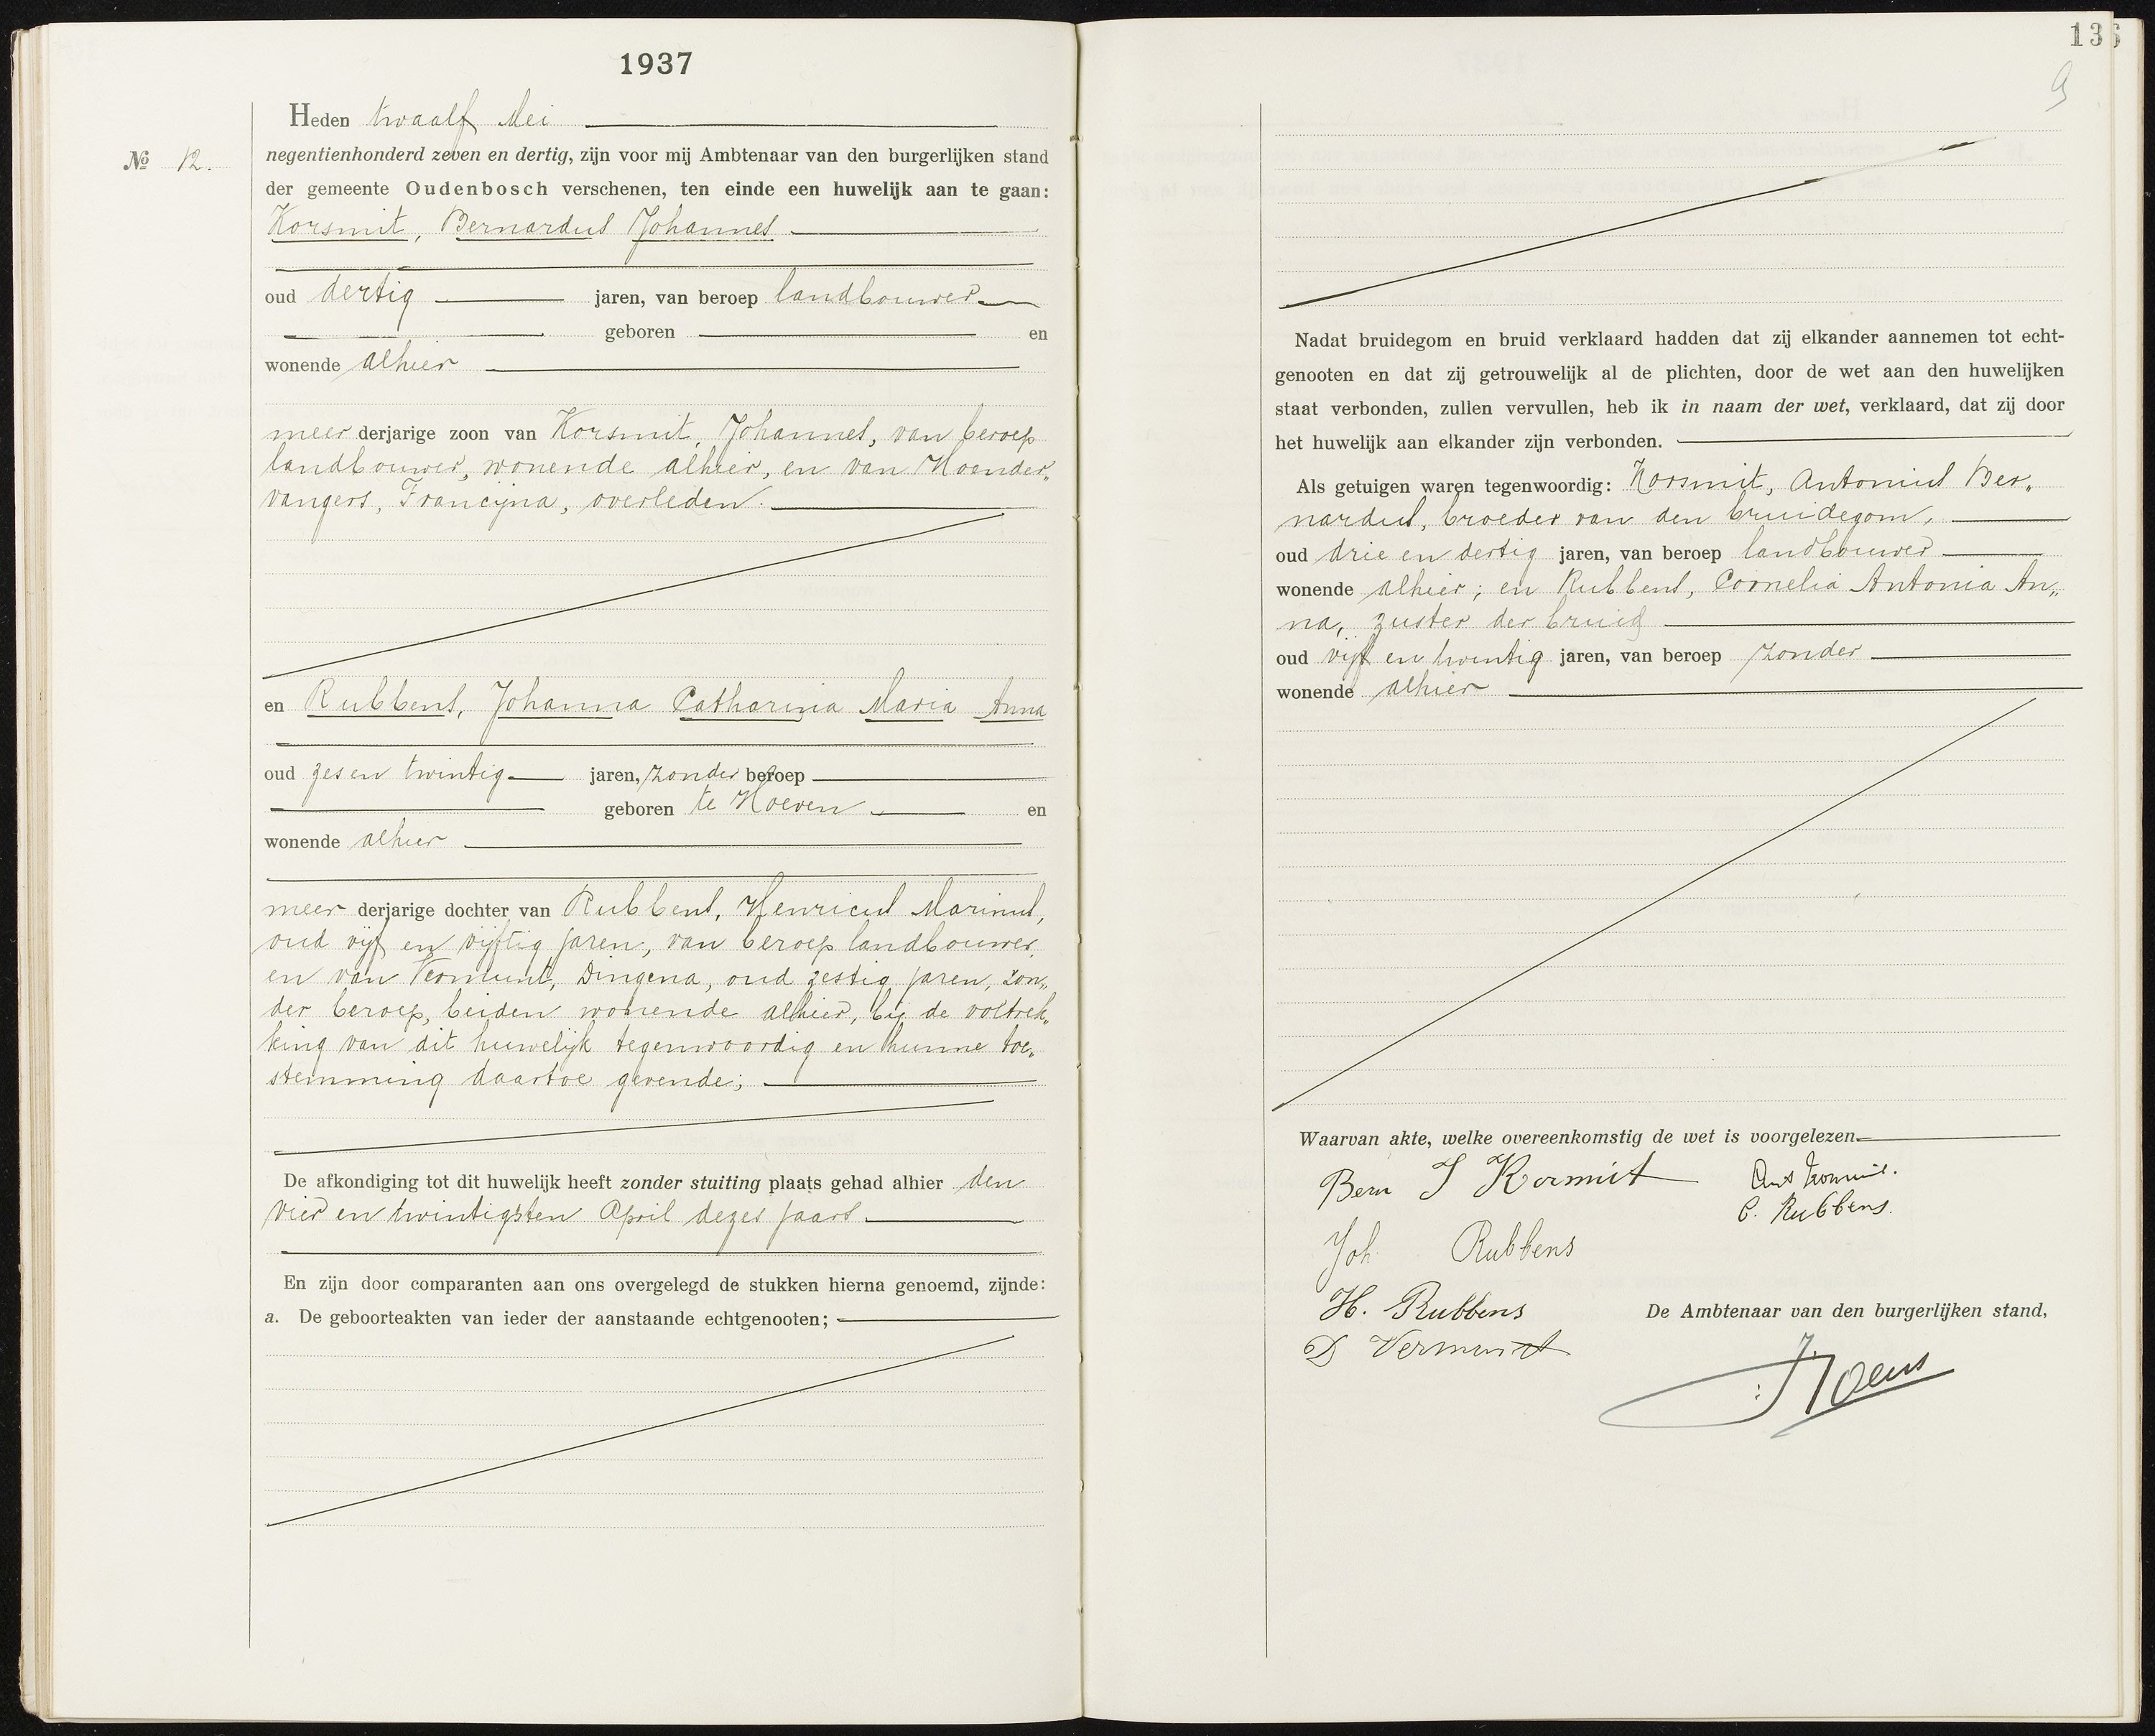 1937
Heden twaalf Mei
No 12.
negentienhonderd zeven en dertig, zijn voor mij Ambtenaar van den burgerlijken stand
der gemeente Oudenbosch verschenen, ten einde een huwelijk aan te gaan:
Korsmit, Bernardus Johannes
oud dertig jaren, van beroep landbouwer
geboren en
wonende alhier
meer derjarige zoon van Korsmit, Johannes, van beroep
landbouwer, wonende alhier, en van Hoender„
vangers, Francijna, overleden.
en Rubbens, Johanna Catharina Maria Anna
oud zes en twintig jaren, zonder beroep
geboren te Hoeven en
wonende alhier
meer derjarige dochter van Rubbens, Henricus Marinus,
oud vijf en vijftig jaren, van beroep landbouwer,
en van Vermunt, Dingena, oud zestig jaren, zon„
der beroep, beiden wonende alhier, bij de voltrek„
king van dit huwelijk tegenwoordig en hunne toe„
stemming daartoe gevende;
De afkondiging tot dit huwelijk heeft zonder stuiting plaats gehad alhier den
vier en twintigsten April dezes jaars
En zijn door comparanten aan ons overgelegd de stukken hierna genoemd, zijnde:
a. De geboorteakten van ieder der aanstaande echtgenooten;
136
9
Nadat bruidegom en bruid verklaard hadden dat zij elkander aannemen tot echt-
genooten en dat zij getrouwelijk al de plichten, door de wet aan den huwelijken
staat verbonden, zullen vervullen, heb ik in naam der wet, verklaard, dat zij door
het huwelijk aan elkander zijn verbonden.
Als getuigen waren tegenwoordig: Korsmit, Antonius Ber„
nardus, broeder van den bruidegom,
oud drie en dertig jaren, van beroep landbouwer
wonende alhier; en Rubbens, Cornelia Antonia An„
na, zuster der bruid
oud vijf en twintig jaren, van beroep zonder
wonende alhier
Waarvan akte, welke overeenkomstig de wet is voorgelezen
Bern J Korsmit
Ant Korsmit.
C. Rubbens.
Joh Rubbens
H. Rubbens
De Ambtenaar van den burgerlijken stand,
D Vermunt